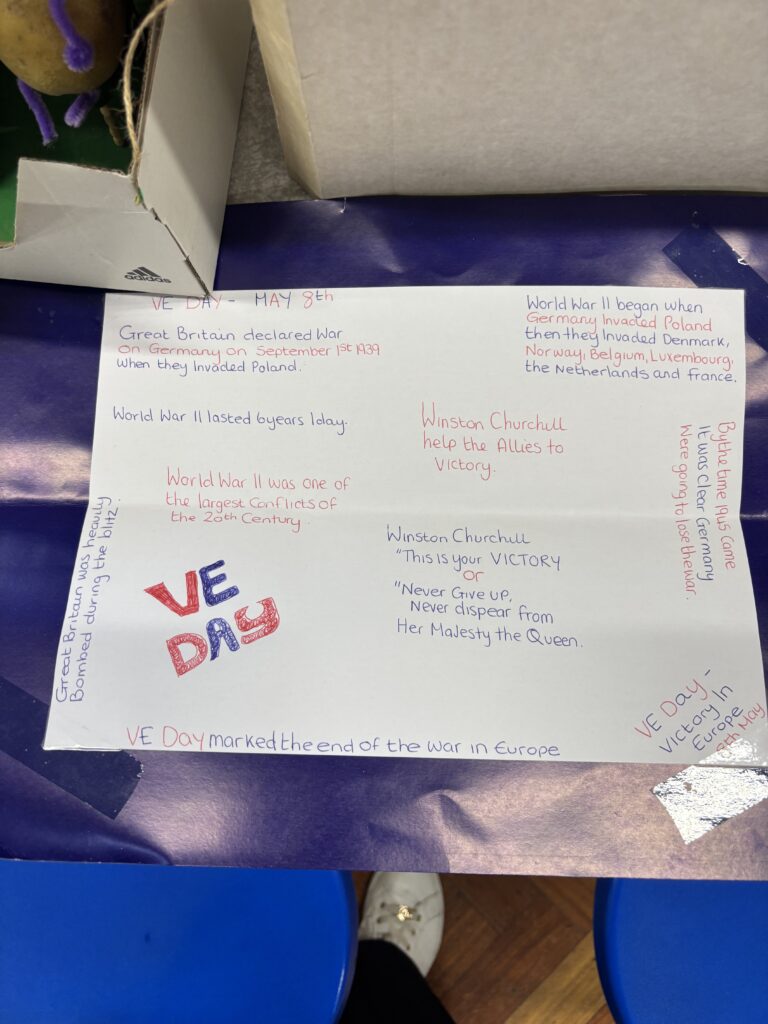 adidas
VE DAY - MAY 8th
Great Britain declared War
on Germany on September 1st 1939
when they Invaded Poland.
World War II began when
Germany Invaded Poland
then they Invaded Denmark,
Norway, Belgium, Luxembourg,
the Netherlands and france.
World War II lasted 6years 1day.
Winston Churchill
help the Allies to
Victory.
By the time 1945 came
It was clear Germany
Were going to lose the war.
World War II was one of
the largest Conflicts of
the 20th Century.
Great Britain was heavily
Bombed during the blitz.
Winston Churchill
"This is your VICTORY
or
"Never Give up,
Never dispear from
Her Majesty the Queen.
VE
DAY
VE Day -
Victory In
Europe
8th May
VE Day marked the end of the war in Europe